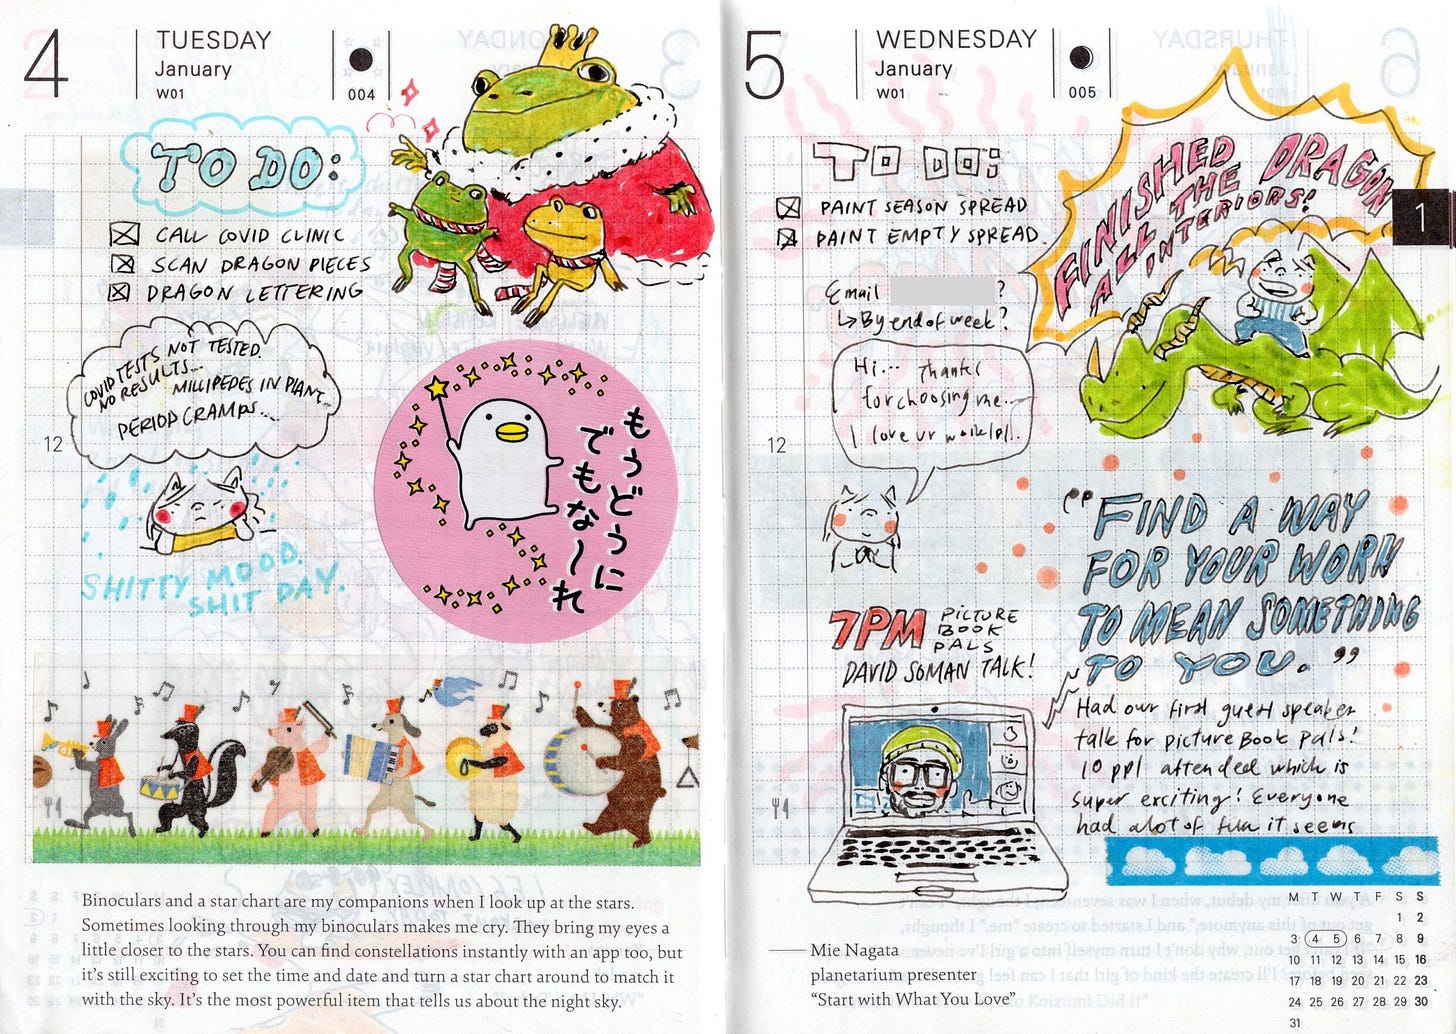 4
TUESDAY
January
W01
004
TO DO:
CALL COVID CLINIC
SCAN DRAGON PIECES
DRAGON LETTERING
COVID TESTS NOT TESTED.
NO RESULTS...
MILLIPEDES IN PLANT..
PERIOD CRAMPS...
SHITTY MOOD.
SHIT DAY.
もうどうに
でもな〜れ
12
Binoculars and a star chart are my companions when I look up at the stars.
Sometimes looking through my binoculars makes me cry. They bring my eyes a
little closer to the stars. You can find constellations instantly with an app too, but
it's still exciting to set the time and date and turn a star chart around to match it
with the sky. It's the most powerful item that tells us about the night sky.
5
WEDNESDAY
January
W01
005
TO DO:
PAINT SEASON SPREAD
PAINT EMPTY SPREAD
Email ?
↳ By end of week?
Hi... Thanks
for choosing me...
I love ur work lol..
12
FINISHED
ALL THE DRAGON
INTERIORS!
1
"FIND A WAY
FOR YOUR WORK
TO MEAN SOMETHING
TO YOU."
7PM PICTURE
BOOK
PALS
DAVID SOMAN TALK!
Had our first guest speaker
talk for Picture Book Pals!
10 ppl attended which is
super exciting! Everyone
had alot of fun it seems
Mie Nagata
planetarium presenter
"Start with What You Love"
M T W T F S S
1 2
3 4 5 6 7 8 9
10 11 12 13 14 15 16
17 18 19 20 21 22 23
24 25 26 27 28 29 30
31